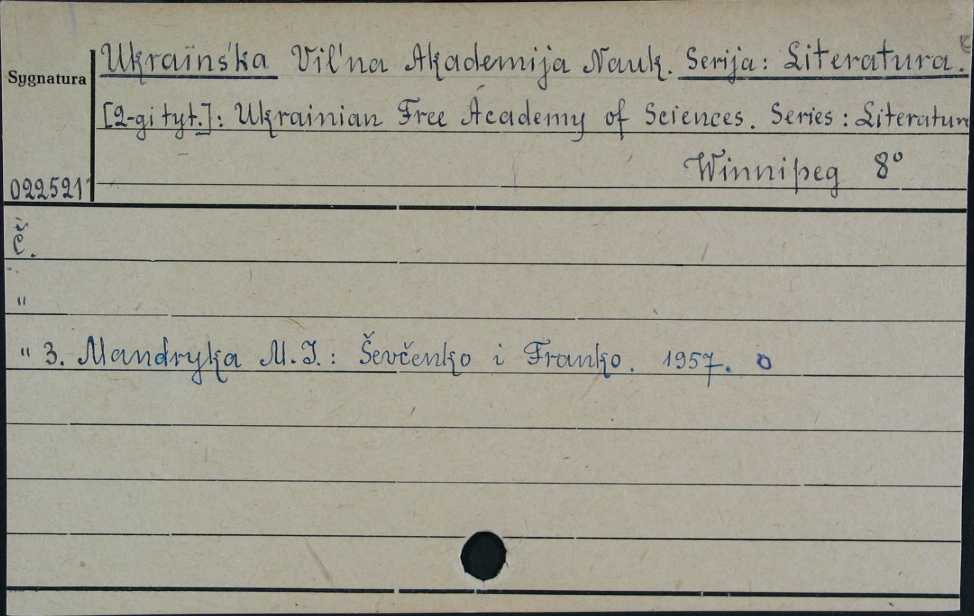 Ukraïns'ka Vil'na Akademija Nauk. Serija: Literatura.
Sygnatura
[2-gi tyt.]: Ukrainian Free Academy of Sciences. Series: Literature
Winnipeg 8°
022521
č.
"
" 3. Mandryka M.I.: Ševčenko i Franko. 1957. o